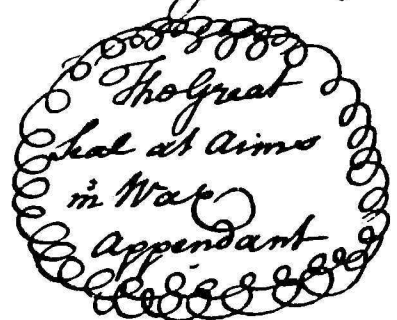 The Great
Seal at Aims
in Wax
Appendant